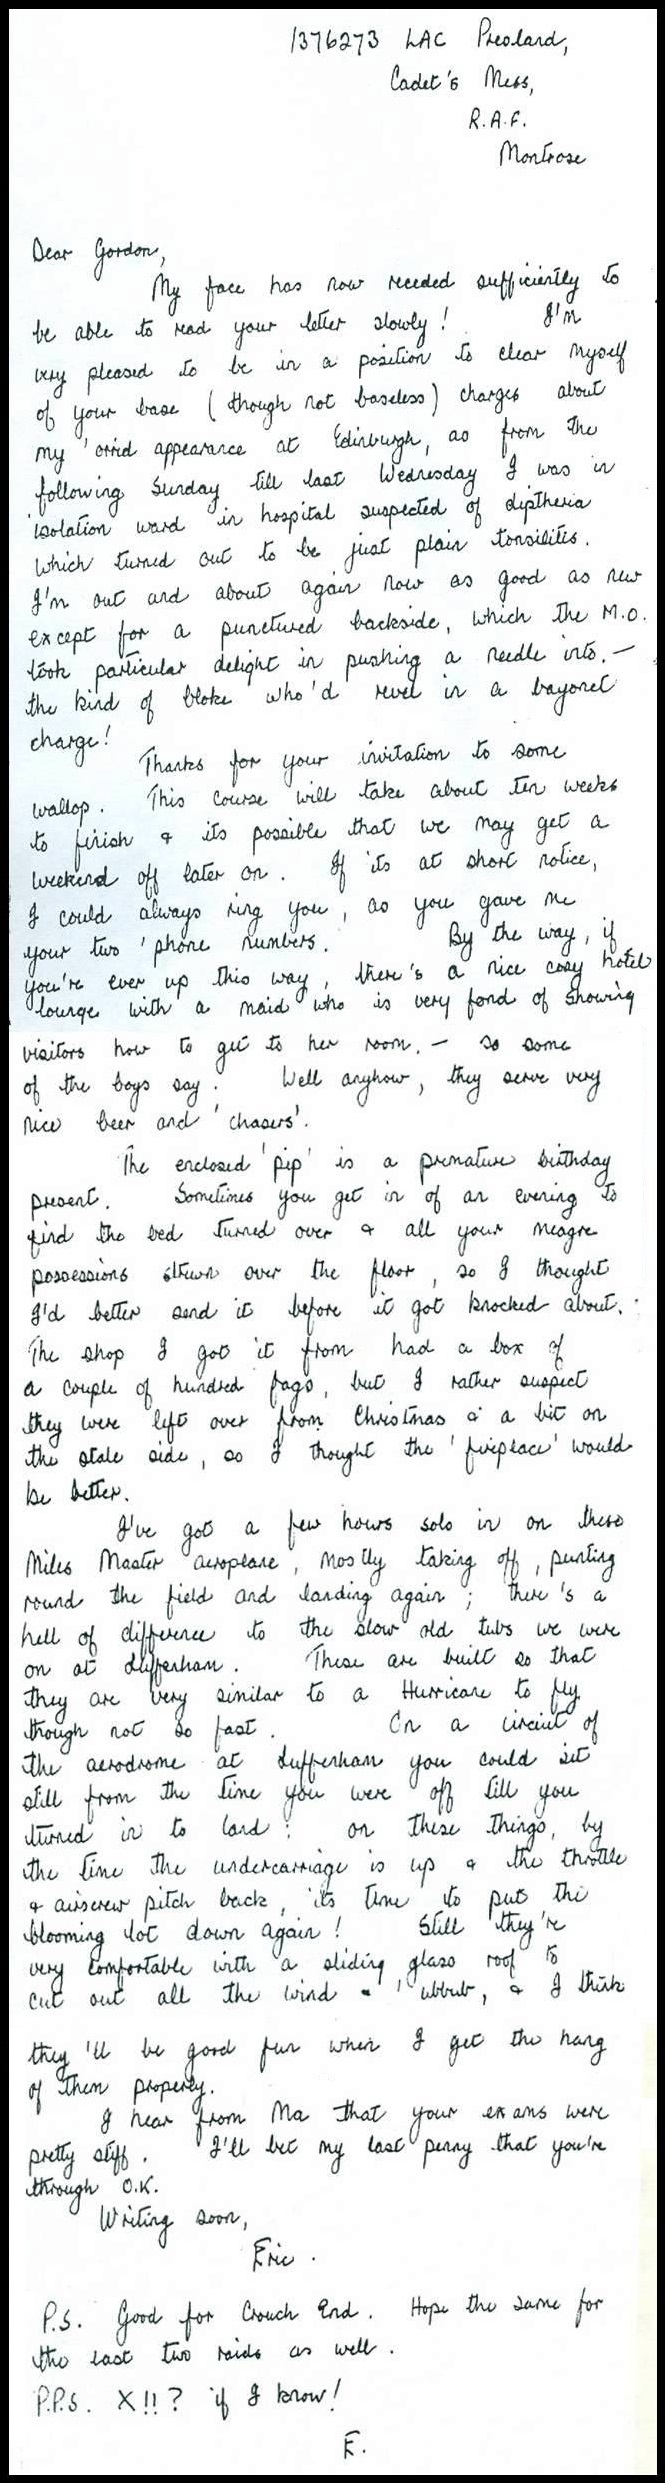 1376273 LAC Preoland,
Cadet's Mess,
R.A.F.
Montrose
Dear Gordon,
My face has now receded sufficiently to
be able to read your letter slowly! I'm
very pleased to be in a position to clear myself
of your base (though not baseless) charges about
my 'orrid appearance at Edinburgh, as from the
following Sunday till last Wednesday I was in
isolation ward in hospital suspected of diptheria
which turned out to be just plain tonsilitis.
I'm out and about again now as good as new
except for a punctured backside, which the M.O.
took particular delight in pushing a needle into. –
the kind of bloke who'd revel in a bayonet
charge!
Thanks for your invitation to some
wallop. This course will take about ten weeks
to finish & its possible that we may get a
weekend off later on. If its at short notice,
I could always ring you, as you gave me
your two 'phone numbers. By the way, if
you're ever up this way, there's a nice cosy hotel
lounge with a maid who is very fond of showing
visitors how to get to her room. – so some
of the boys say. Well anyhow, they serve very
nice beer and 'chasers'.
The enclosed 'pip' is a premature birthday
present. Sometimes you get in of an evening to
find the bed turned over & all your meagre
possessions strewn over the floor, so I thought
I'd better send it before it got knocked about.
The shop I got it from had a box of
a couple of hundred fags, but I rather suspect
they were left over from Christmas & a bit on
the stale side, so I thought the 'fireplace' would
be better.
I've got a few hours solo in on these
Miles Master aeroplane, mostly taking off, punting
round the field and landing again; there's a
hell of difference to the slow old tubs we were
on at Sufferham. These are built so that
they are very similar to a Hurricane to fly
though not so fast. On a circuit of
the aerodrome at Sufferham you could sit
still from the time you were off till you
turned in to land: on these things, by
the time the undercarriage is up & the throttle
& airscrew pitch back, its time to put the
blooming lot down again! Still they're
very comfortable with a sliding glass roof to
cut out all the wind & 'ubbub, & I think
they'll be good fun when I get the hang
of them properly.
I hear from Ma that your exams were
pretty stiff. I'll bet my last penny that you're
through O.K.
Writing soon,
Eric.
P.S. Good for Crouch End. Hope the same for
the last two raids as well.
P.P.S. X!!? if I know!
E.